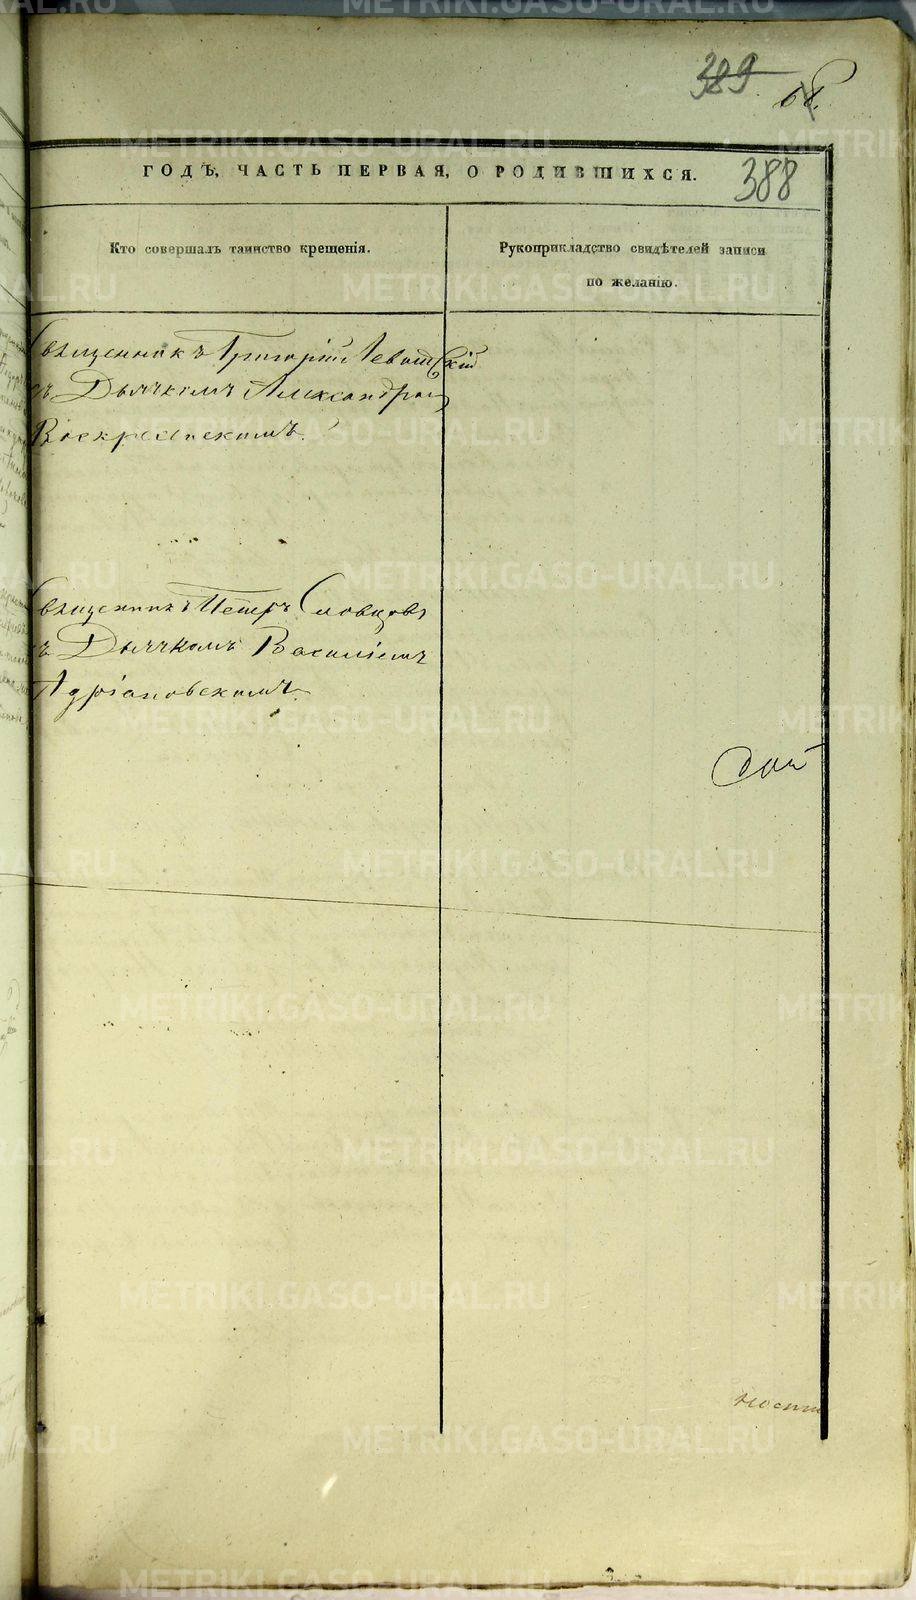 389
68.
ГОДЪ, ЧАСТЬ ПЕРВАЯ, О РОДИВШИХСЯ.
388
Кто совершалъ таинство крещенія.
Рукоприкладство свидѣтелей записи
по желанію.
Священникъ Григорій Левитскій
съ Дьячкомъ Александромъ
Воскресенскимъ.
Священникъ Петръ Словцовъ
съ Дьячкомъ Василіемъ
Адріановскимъ.
METRIKI.GASO-URAL.RU